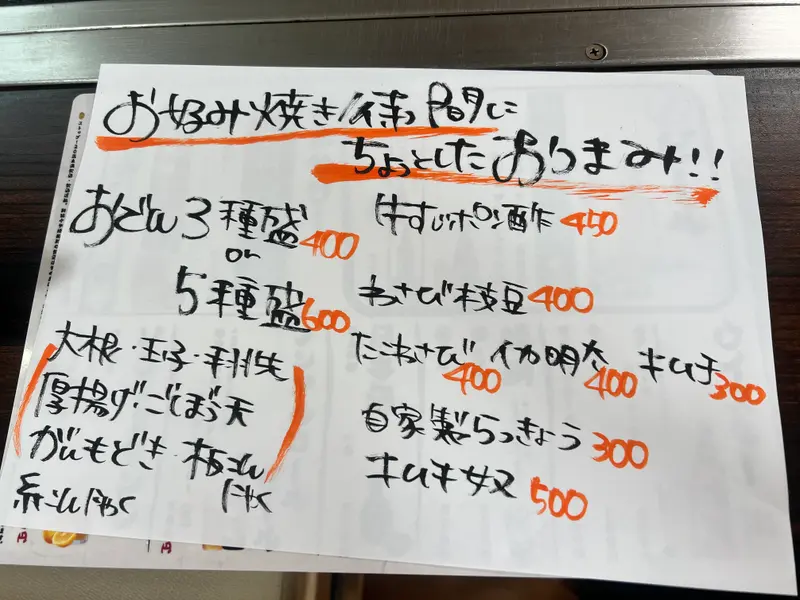 お好み焼き待つ間に
ちょっとしたおつまみ!!
おでん3種盛400
or
5種盛600
大根・玉子・平天
厚揚げ・ごぼう天
がんもどき・板こん
にゃく
糸こんにゃく
牛すじポン酢450
わさび枝豆400
たこわさび400 イカ明太400 キムチ300
自家製らっきょう300
キムチ奴500